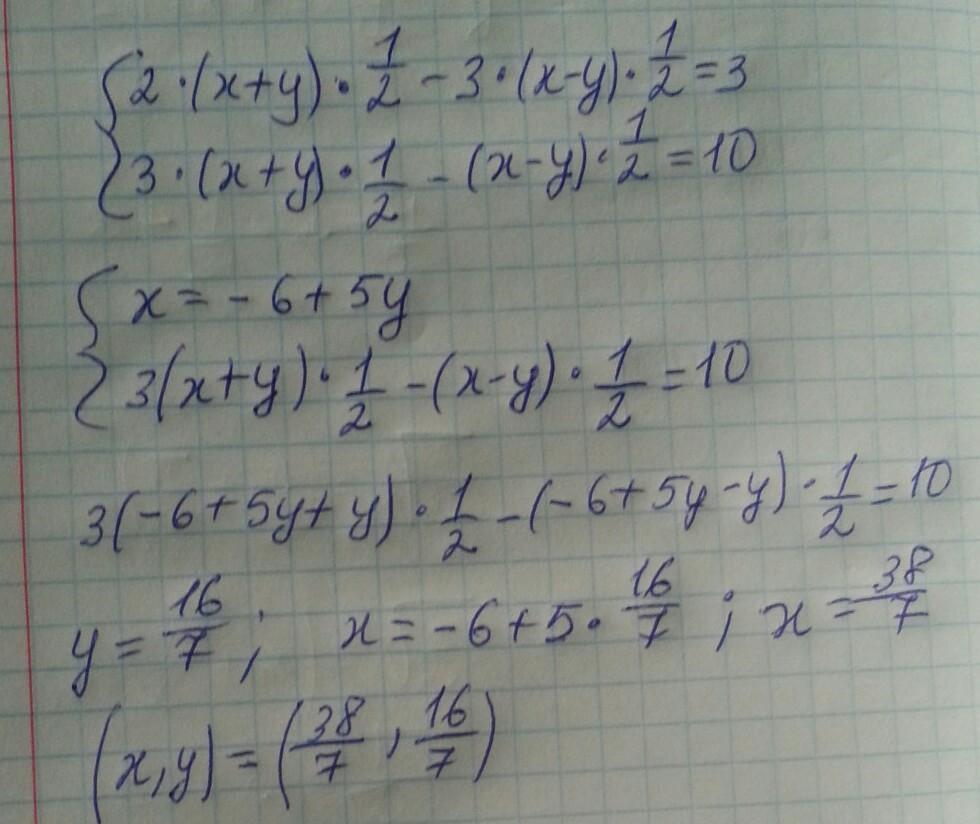 {2·(x+y)·1/2-3·(x-y)·1/2=3
{3·(x+y)·1/2-(x-y)·1/2=10
{x=-6+5y
{3(x+y)·1/2-(x-y)·1/2=10
3(-6+5y+y)·1/2-(-6+5y-y)·1/2=10
y=16/7; x=-6+5·16/7; x=38/7
(x,y)=(38/7,16/7)